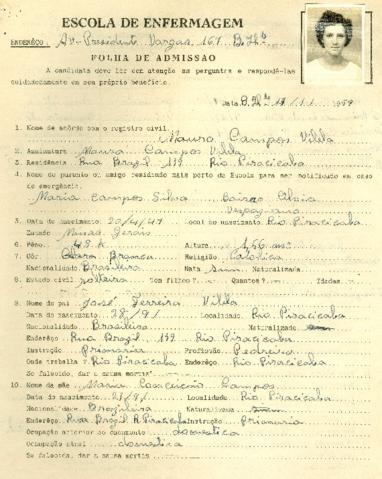 ESCOLA DE ENFERMAGEM
ENDERÊÇO Av- Presidente Vargas, 167. B. Hte
FOLHA DE ADMISSÃO
A candidata deve ler com atenção as perguntas e respondê-las
cuidadosamente em seu próprio benefício.
Data. B. Hte 19/11/1959
1. Nome de acôrdo com o registro civil
Maura Campos Vilela
2. Assinatura Maura Campos Vilela
3. Residência Rua Brazil 199 Rio Piracicaba
4. Nome do parente ou amigo residindo mais perto da Escola para ser notificado em caso
de emergência.
Maria Campos Silva Bairro
Vespasiano
5. Data do nascimento 20/4/41 Local do nascimento Rio Piracicaba
Estado Minas Gerais
6. Pêso: 48 K Altura 1,66
7. Côr: Clara Branca Religião Católica
Nacionalidade Brasileira Nata sim Naturalizada
8. Estado civil solteira Tem filhos? Quantos? Idades
9. Nome do pai José Ferreira Vilela
Data do nascimento 28/91 Localidade Rio Piracicaba
Nacionalidade Brasileira Naturalizado
Enderêço Rua Brazil 199 Rio Piracicaba
Instrução Primaria Profissão Pedreiro
Onde trabalha? Rio Piracicaba Enderêço Rio Piracicaba
Se falecido, dar a causa mortis
10. Nome da mãe Maria Campos
Data do nascimento Localidade Rio Piracicaba
Nacionalidade Brazileira Naturalizada
Enderêço Rua Brazil R. Piracicaba Instrução primaria
Ocupação anterior ao casamento domestica
Ocupação atual domestica
Se falecida, dar a causa mortis